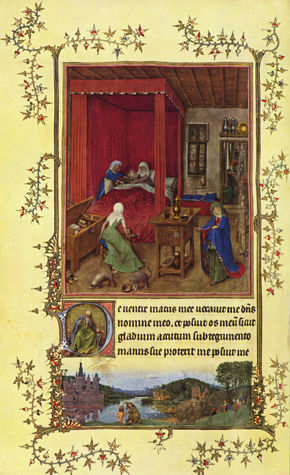 De ventre matris mee vocavit me dñs
nomine meo. et posuit os meū sicut
gladium acutum sub tegumento
manus sue protexit me posuit me